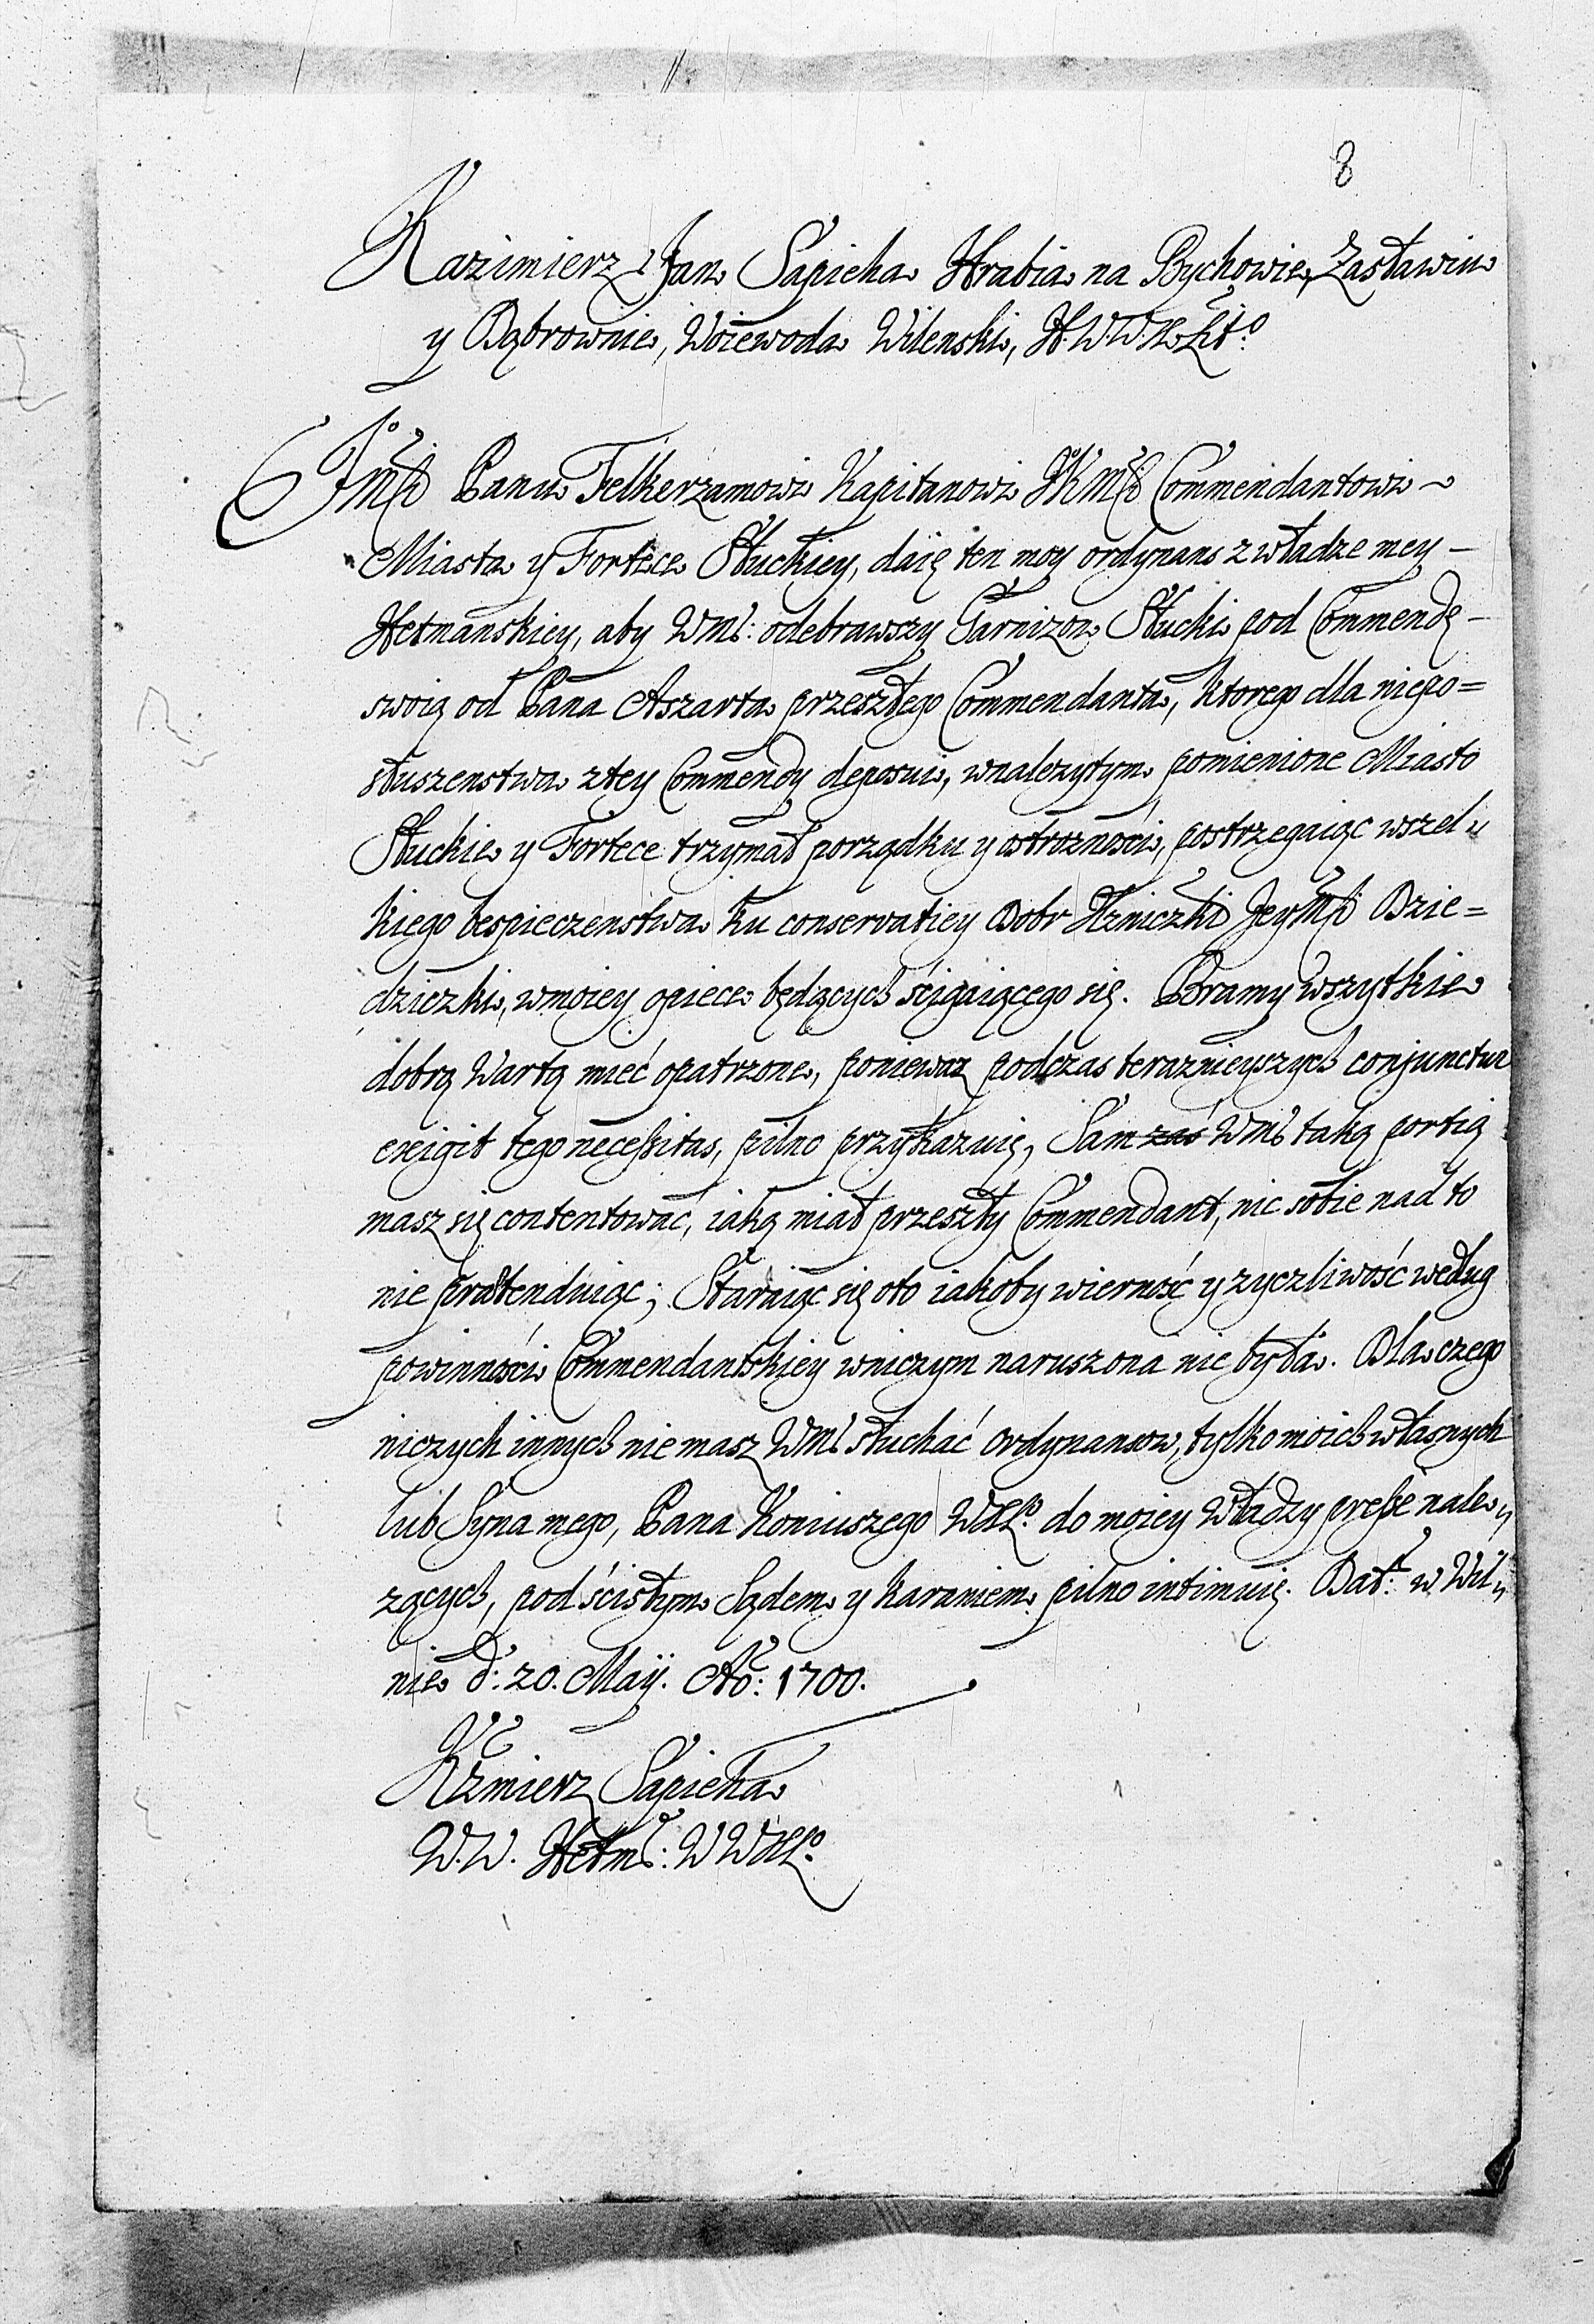 8
Kazimierz Jan Sapieha Hrabia na Bychowie, Zasławiu
y Dąbrownie, Woiewoda Wilenski, H. W. W. X. Litº:
Jº Mści Panu Felkerzamowi Kapitanowi JKMści Commendantowi ~
Miasta y Fortece Słuckiey, daię ten moy ordynans z władze mey –
Hetmanskiey, aby WMć: odebrawszy Garnizon Słucki pod Commendę –
swoią od Pana Aszarta przeszłego Commendanta, ktorego dla niepo=
słuszenstwa z tey Commendy deposui, w nalezytym pomienione Miasto
Słuckie y Fortece trzymał porządku y ostrozności, postrzegaiąc wszel„
kiego bespieczenstwa ku conservatiey Dobr Xzniczki JeyMści Dzie=
dziczki, w moiey opiece będących ściągaiącego się. Bramy wszytkie
dobrą Wartą mieć opatrzone, poniewaz podczas terazneyszych conjunctur
exigit tego necessitas, pilno przykazuię, Sam zaś WMć taką portią
masz się contentować, iaką miał przeszły Commendant, nic sobie nad to
nie prætenduiąc; Staraiąc się oto iakoby wierność y zyczliwość według
powinności Commendantskiey w niczym naruszona nie była. Dla czego
niczych innych nie masz WMć słuchać ordynansow, tylko moich własnych
lub Syna mego, Pana Koniuszego WXLº. do moiey Władzy presse nale„
zących, pod ścisłym Sądem y karaniem pilno intimuię. Dat: w Wil„
nie d: 20. Maij. Aº: 1700.
Kźmierz Sapieha
W. W. Hetmń: W W X Lº.